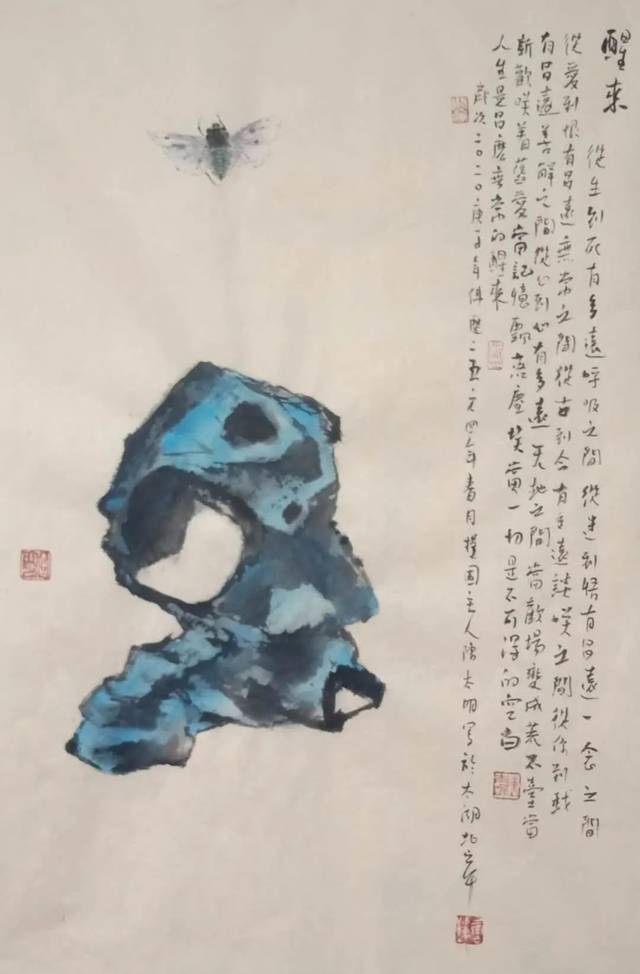 醒來
從生到死有多遠呼吸之間從迷到悟有多遠一念之間
從愛到恨有多遠無常之間從古到今有多遠談咲之間從你到我
有多遠善解之間從心到心有多遠天地之間當歡場變成荒臺當
新歡咲着舊愛當記憶飄落塵埃當一切是不可得的空白
人生是多麼無常的醒來
歲次二〇二〇庚子年佛歷二五六四年春月樸園主人陳太明寫於太湖北岸